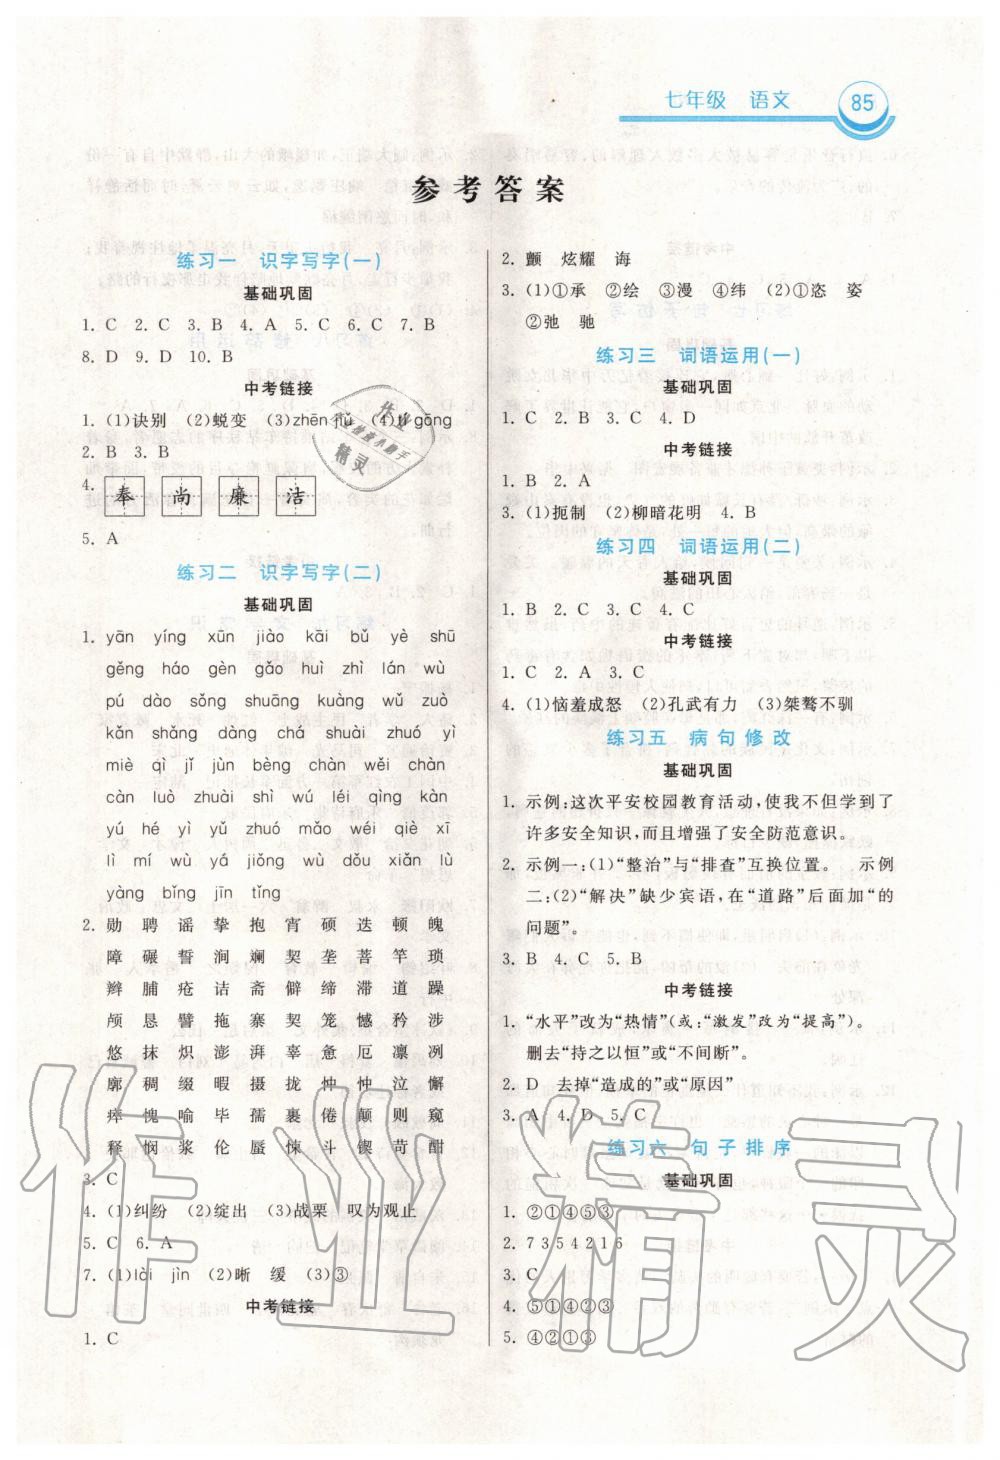 七年级 语文 85
参考答案
练习一 识字写字(一)
基础巩固
1. C 2. C 3. B 4. A 5. C 6. C 7. B
8. D 9. D 10. B
中考链接
1. (1)诀别 (2)蜕变 (3)zhēn jiǔ (4)tí gōng
2. B 3. B
4. 奉 尚 廉 洁
5. A
练习二 识字写字(二)
基础巩固
1. yān yíng xūn jiào kāi bǔ yè shū
gěng háo gèn gǎo huì zhì lán wù
pú dào sǒng shuāng kuàng wǔ zuò
kǎn shǎng dàng chá shuài zhuó yí
miè qì jǐ jùn bèng chàn wěn chì
càn luò zhuài shì wú léi qìng kàn
yú hé yì yǔ zhuó mǎo wéi qiè xī
lì mí wù yá jiǒng wù dǒu xiǎn lù
yàng bǐng jīn tǐng
2. 勋 聘 谣 挚 抱 宵 硕 迭 顿 魄
障 碾 誓 涧 斓 契 垄 菩 竿 琐
辫 脯 疮 诘 斋 僻 缔 滞 道 躁
颅 恳 譬 拖 寨 契 笼 憾 矜 涉
悠 抹 炽 澎 湃 辜 惫 厄 凛 冽
廓 稠 缀 暇 摄 拢 忡 忡 泣 懈
瘴 愧 喻 毕 孺 裹 倦 颠 则 窥
释 悯 浆 伦 蜃 惊 斗 锲 苛 酣
3. C
4. (1)纠纷 (2)绽出 (3)战栗 叹为观止
5. C 6. A
7. (1)lài jìn (2)晰 缓 (3)③
中考链接
1. C
2. 颤 炫耀 诲
3. (1)①承 ②绘 ③漫 ④纬 (2)①恣 姿
②弛 驰
练习三 词语运用(一)
基础巩固
1. C 2. B 3. C 4. D
中考链接
1. B 2. A
3. (1)扼制 (2)柳暗花明 4. B
练习四 词语运用(二)
基础巩固
1. B 2. C 3. C 4. C
中考链接
1. C 2. A 3. C
4. (1)恼羞成怒 (2)孔武有力 (3)桀骜不驯
练习五 病句修改
基础巩固
1. 示例:这次平安校园教育活动,使我不但学到了
许多安全知识,而且增强了安全防范意识。
2. 示例一:(1)“整治”与“排查”互换位置。 示例
二:(2)“解决”缺少宾语,在“道路”后面加“的
问题”。
3. B 4. C 5. B
中考链接
1. “水平”改为“热情”(或:“激发”改为“提高”)。
删去“持之以恒”或“不间断”。
2. D 去掉“造成的”或“原因”
3. A 4. D 5. C
练习六 句子排序
基础巩固
1. ②①④⑤③
2. 7 3 5 4 2 1 6
3. C
4. ⑤①④②③
5. ④②①③
作业精灵